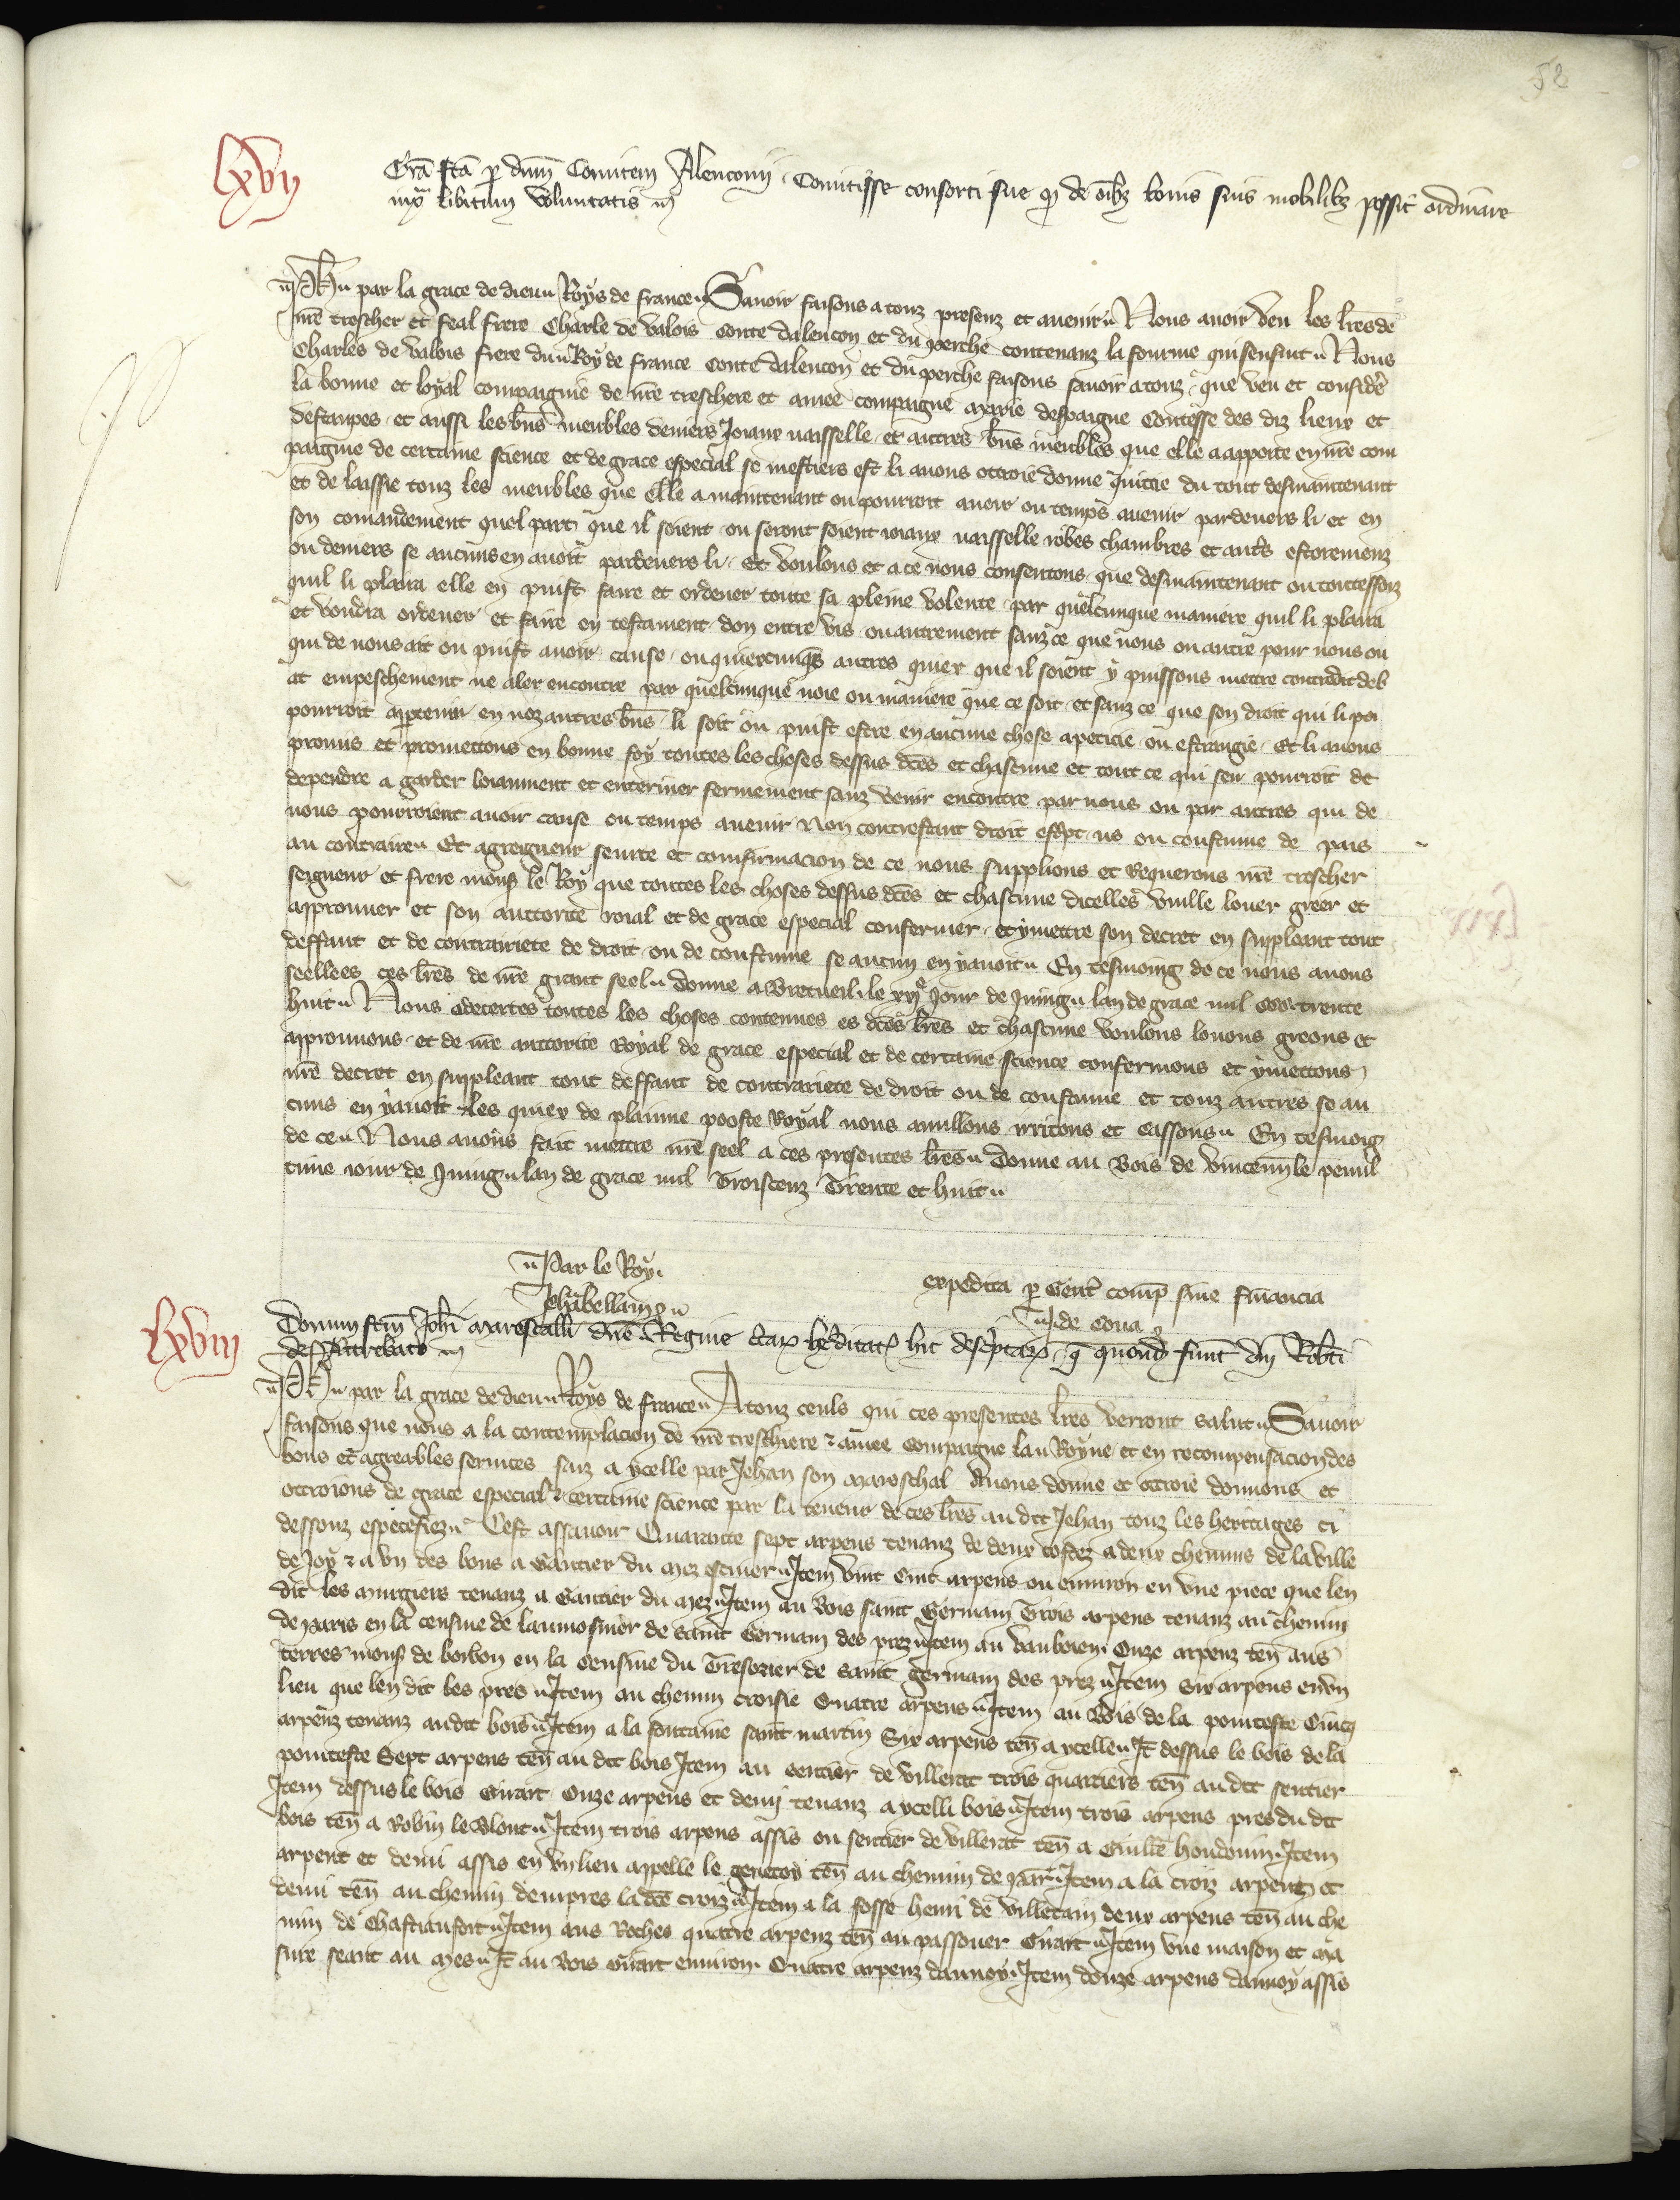 52
lxvij
Grā fcā p dnm Comitem Alenconij Comitisse consorti sue qd de oībz bonis suis mobilibz possit ordinare
iuxᵃ libitum voluntatis
Ph par la grace de dieu Roys de france Sauoir faisons a touz presenz et auenir Nous auoir veu les lres de
nrē trescher et feal frere Charle de valois conte dalencon et du perche contenanz la fourme qui sensuit Nous
Charles de valois frere du Roy de france conte dalencon et du perche faisons sauoir a touz que veu et consideˀ
la bonne et loyal compaignie de nrē treschere et amee compaigne marie despaigne Contesse des diz lieux et
destanpes et aussi les bns meubles deniers Joiaux vaisselle et autres bns meubles que elle a apporte en nrē com
paignie de certaine science et de grace especial se mestiers est li auons ottroie donne quittie du tout desmaintenant
et de laissie touz les meubles que elle a maintenant ou pourroit auoir ou temps auenir pardeuers li et en
son comandement quel part que il soient ou seront soient ioiaux vaisselle robes chambres et autˢ estoremenz
ou deniers se aucuns en auoit pardeuers li Et voulons et a ce nous consentons que desmaintenant ou toutesfoiz
quil li plaira elle en puist faire et ordener toute sa pleine volente par quelcunque maniere quil li plaira
et voudra ordener et faire en testament don entre vis ou autrement sanz ce que nous ou autre pour nous ou
qui de nous ait ou puist auoir cause ou quiercunqs autres quiex que il soient y puissons mettre contredit deb
at empeschement ne aler encontre par quelcunque voie ou maniere que ce soit et sanz ce que son droit qui li po
pourroit apptenir en noz autres bns li soit ou puist estre en aucune chose apeticie ou estrangie Et li auons
promis et promettons en bonne foy toutes les choses dessus dcēs et chascune et tout ce qui sen pourroit de
dependre a garder loiaument et enteriner fermement sanz venir encontre par nous ou par autres qui de
nous pourroient auoir cause ou temps auenir Non contrestant droit escpt us ou coustume de pais
au contraire Et a greigneur seurte et comfirmacion de ce nous supplions et requerons nrē trescher
seigneur et frere mons le Roy que toutes les choses dessus dcēs et chascune dicelles vuille louer greer et
approuuer et son auctorite roial et de grace especial confermer et y mettre son decret en suppleant tout
deffaut et de contrariete de droit ou de coustume se aucun en y auoit En tesmoing de ce nous auons
seellees ces lrēs de nrē grant seel donne a Bretueil le xxjᵉ Jour de Juing lan de grace mil ccc trente
huit Nous adecertes toutes les choses contenues es dcēs lrēs et chascune voulons louons greons et
approuuons et de nrē auctorite Royal de grace especial et de certaine science confermons et y mettons
nrē decret en suppleant tout deffaut de contrariete de droit ou de coustume et touz autres se au
cuns en y auoit les quiex de plaine pooste Royal nous anullons irritons et cassons En tesmoig
de ce Nous auons fait mettre nrē seel a ces presentes lrēs donne au Bois de vincenn le penul
time iour de Juing lan de grace mil Troiscenz Trente et huit
Par le Roy
Jchabellain
expedita p gent comp sine financia
J de cona
lxviij
Donum fcm Johi marescalli dnē Regine ctarp hereditatp hic descptarp q quond funt dni Robti
des Attrebato
Ph par la grace de dieu Roys de france A touz ceuls qui ces presentes lrēs verront salut Sauoir
faisons que nous a la contemplacion de nrē treschiere & amee compaigne lau Royne et en recompensacion des
bons et agreables seruices faiz a ycelle par Jehan son mareschal Auons donne et ottroie donnons et
ottroions de grace especial & certaine science par la teneur de ces lrēs au dit Jehan touz les heritages ci
dessouz especefiez Cest assauoir Quarante sept arpens tenanz de deux costez a deux chemins de la ville
de Joy & a vn des bous a Gautier du mez escuier Item vint Cinc arpens ou enuiron en vne piece que len
dit les murgiers tenanz a Gautier du mez Item au Bois saint Germain Trois arpens tenanz au chemin
de paris en la censiue de laumosnier de saint Germain des prez Item au vauboien Onze arpenz ten aus
terres mons de bouon en la censiue du Tresorier de saint germain des prez Item Six arpens en vn
lieu que len dit les pres Item au chemin croisie Quatre arpens Item au Bois de la pointeste Cinq
arpenz tenanz au dit bois Item a la fontaine saint martin Six arpens ten a ycelle It dessus le bois de la
pointeste Sept arpens ten au dit bois Item au sentier de villerat trois quartiers ten au dit sentier
Item dessus le bois Girart Onze arpens et demi tenanz a ycelli bois Item trois arpens pres du dit
bois ten a Robin le Blont Item trois arpens assis ou sentier de villerat ten a Guille houdouin Item
arpent et demi assis en vn lieu appelle le genetoy ten au chemin de par Item a la croiz arpent et
demi ten au chemin dempres la dcē croiz Item a la fosse henri de villetain deux arpens ten au che
min de Chastiaufort Item aus Roches quatre arpenz ten au passouer Girart Item vne maison et ma
sure seant au mes It au Bois Girart enuiron Quatre arpenz dannoy Item douze arpens dannoy assis